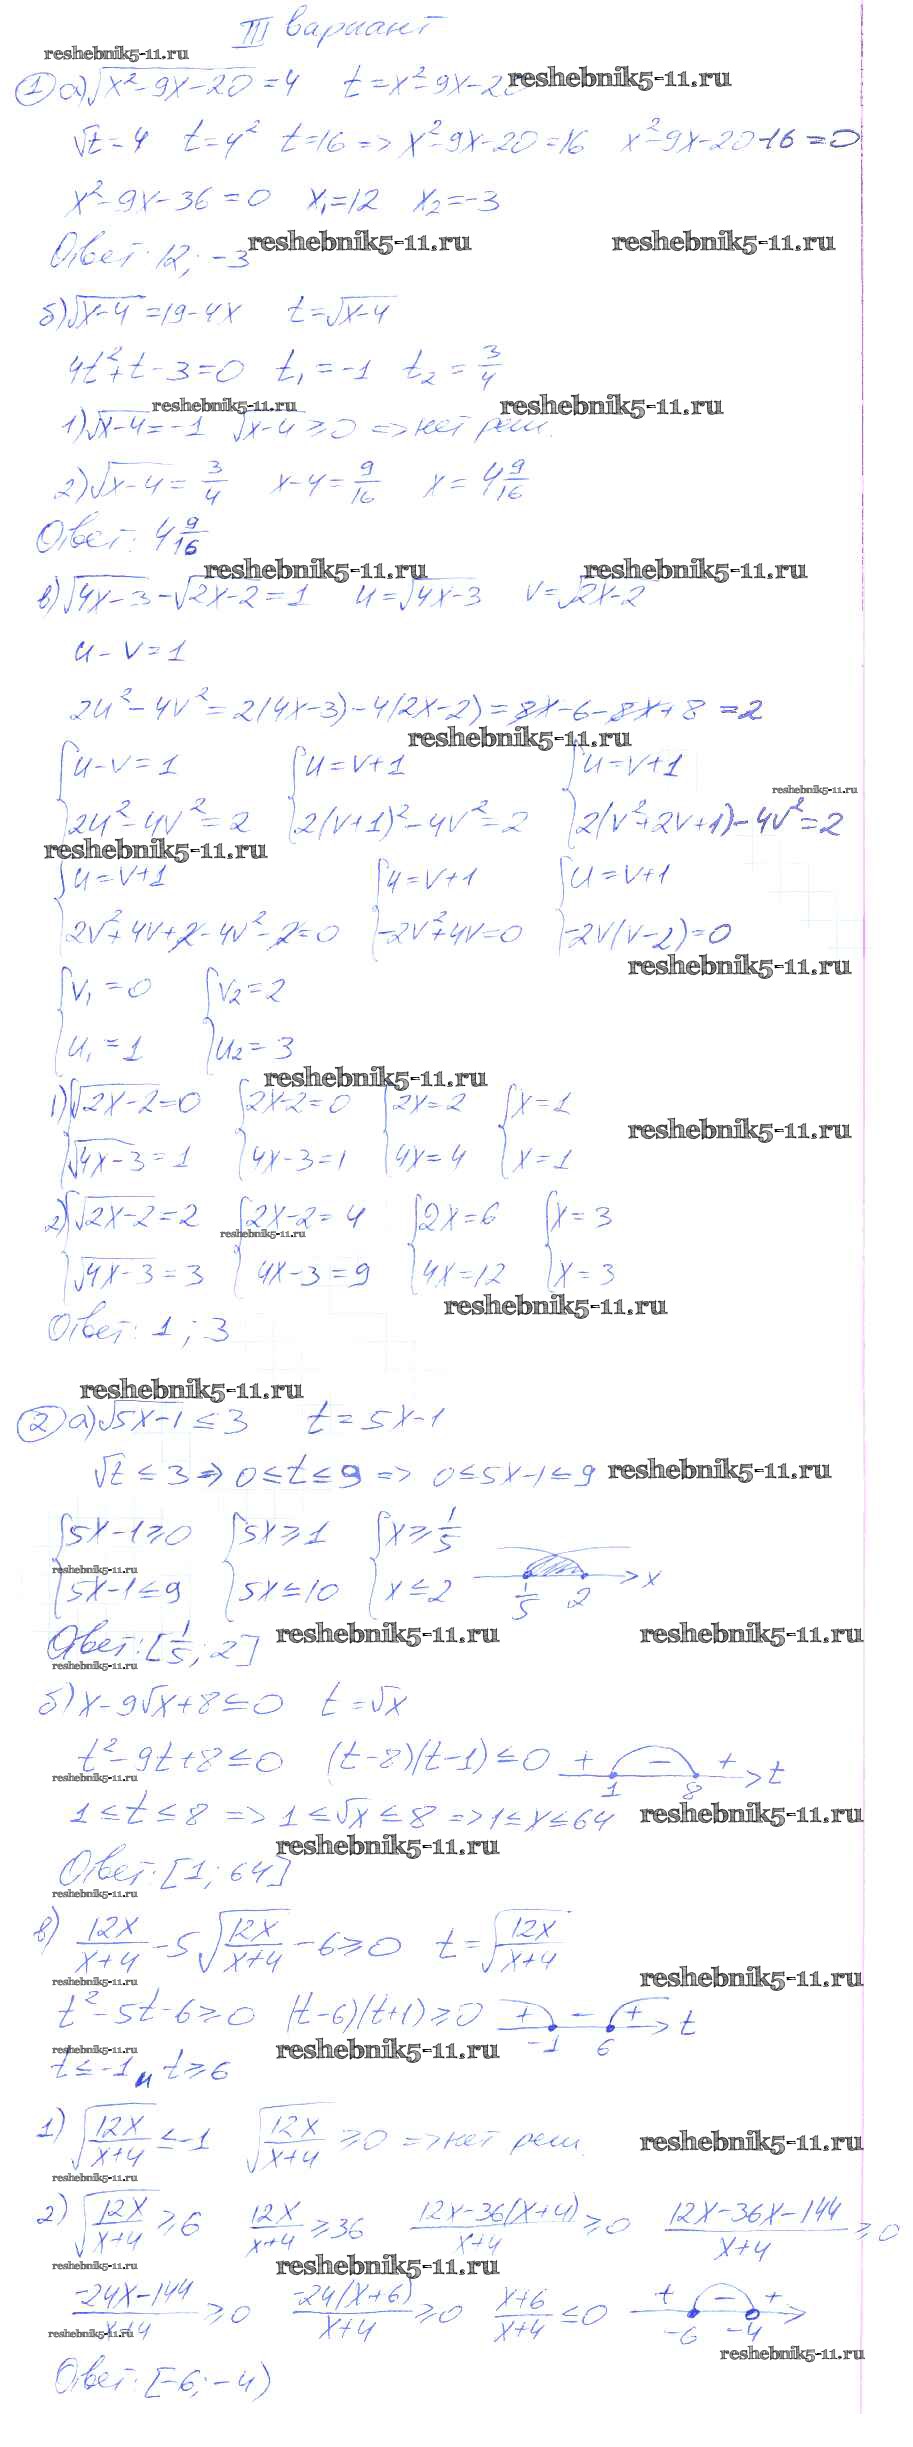 III вариант
reshebnik5-11.ru
① а) √(x²-9x-20) = 4 t = x²-9x-20 reshebnik5-11.ru
√t = 4 t = 4² t = 16 => x²-9x-20 = 16 x²-9x-20-16 = 0
x²-9x-36 = 0 x₁ = 12 x₂ = -3
Ответ: 12; -3 reshebnik5-11.ru reshebnik5-11.ru
б) √(x-4) = 19-4x t = √(x-4)
4t²+t-3 = 0 t₁ = -1 t₂ = 3/4
reshebnik5-11.ru reshebnik5-11.ru
1) √(x-4) = -1 √(x-4) ≥ 0 => нет реш.
2) √(x-4) = 3/4 x-4 = 9/16 x = 4 9/16
Ответ: 4 9/16
reshebnik5-11.ru reshebnik5-11.ru
в) √(4x-3) - √(2x-2) = 1 u = √(4x-3) v = √(2x-2)
u-v = 1
2u²-4v² = 2(4x-3)-4(2x-2) = 8x-6-8x+8 = 2
reshebnik5-11.ru
{u-v = 1 {u = v+1 {u = v+1
reshebnik5-11.ru
{2u²-4v² = 2 {2(v+1)²-4v² = 2 {2(v²+2v+1)-4v² = 2
reshebnik5-11.ru
{u = v+1 {u = v+1 {u = v+1
{2v²+4v+2-4v²-2 = 0 {-2v²+4v = 0 {-2v(v-2) = 0
reshebnik5-11.ru
{v₁ = 0 {v₂ = 2
{u₁ = 1 {u₂ = 3
reshebnik5-11.ru
1) {√(2x-2) = 0 {2x-2 = 0 {2x = 2 {x = 1
reshebnik5-11.ru
{√(4x-3) = 1 {4x-3 = 1 {4x = 4 {x = 1
2) {√(2x-2) = 2 {2x-2 = 4 {2x = 6 {x = 3
reshebnik5-11.ru
{√(4x-3) = 3 {4x-3 = 9 {4x = 12 {x = 3
reshebnik5-11.ru
Ответ: 1; 3
reshebnik5-11.ru
② а) √(5x-1) ≤ 3 t = 5x-1
√t ≤ 3 => 0 ≤ t ≤ 9 => 0 ≤ 5x-1 ≤ 9 reshebnik5-11.ru
{5x-1 ≥ 0 {5x ≥ 1 {x ≥ 1/5
reshebnik5-11.ru
{5x-1 ≤ 9 {5x ≤ 10 {x ≤ 2 1/5 2 x
Ответ: [1/5; 2] reshebnik5-11.ru reshebnik5-11.ru
reshebnik5-11.ru
б) x-9√x+8 ≤ 0 t = √x
t²-9t+8 ≤ 0 (t-8)(t-1) ≤ 0 + - + 1 8 t
reshebnik5-11.ru
1 ≤ t ≤ 8 => 1 ≤ √x ≤ 8 => 1 ≤ x ≤ 64 reshebnik5-11.ru
reshebnik5-11.ru
Ответ: [1; 64]
reshebnik5-11.ru
в) 12x/(x+4) - 5√(12x/(x+4)) - 6 ≥ 0 t = √(12x/(x+4))
reshebnik5-11.ru reshebnik5-11.ru
t²-5t-6 ≥ 0 (t-6)(t+1) ≥ 0 + - + -1 6 t
reshebnik5-11.ru reshebnik5-11.ru
t ≤ -1 и t ≥ 6
1) √(12x/(x+4)) ≤ -1 √(12x/(x+4)) ≥ 0 => нет реш. reshebnik5-11.ru
reshebnik5-11.ru
2) √(12x/(x+4)) ≥ 6 12x/(x+4) ≥ 36 (12x-36(x+4))/(x+4) ≥ 0 (12x-36x-144)/(x+4) ≥ 0
reshebnik5-11.ru reshebnik5-11.ru
(-24x-144)/(x+4) ≥ 0 -24(x+6)/(x+4) ≥ 0 (x+6)/(x+4) ≤ 0 + - + -6 -4
reshebnik5-11.ru
reshebnik5-11.ru
Ответ: [-6; -4)